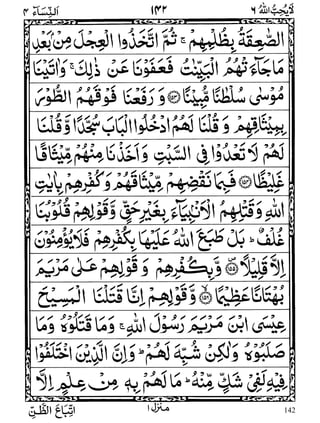 لَا يُحِبُّ اللهُ ٦ ١٤٢ اَلنِّسَآء ٤
الصّٰعِقَةُ بِظُلْمِهِمْ ۚ ثُمَّ اتَّخَذُوا الْعِجْلَ مِنْۢ بَعْدِ
مَا جَآءَتْهُمُ الْبَيِّنٰتُ فَعَفَوْنَا عَنْ ذٰلِكَ ۚ وَاٰتَيْنَا
مُوْسٰى سُلْطٰنًا مُّبِيْنًا ﴿١٥٣﴾ وَ رَفَعْنَا فَوْقَهُمُ الطُّوْرَ
بِمِيْثَاقِهِمْ وَ قُلْنَا لَهُمُ ادْخُلُوا الْبَابَ سُجَّدًا وَّ قُلْنَا
لَهُمْ لَا تَعْدُوْا فِى السَّبْتِ وَ اَخَذْنَا مِنْهُمْ مِّيْثَاقًا
غَلِيْظًا ﴿١٥٤﴾ فَبِمَا نَقْضِهِمْ مِّيْثَاقَهُمْ وَ كُفْرِهِمْ بِاٰيٰتِ
اللهِ وَ قَتْلِهِمُ الْاَنْۢبِيَآءَ بِغَيْرِ حَقٍّ وَّ قَوْلِهِمْ قُلُوْبُنَا
غُلْفٌ ؕ بَلْ طَبَعَ اللهُ عَلَيْهَا بِكُفْرِهِمْ فَلَا يُؤْمِنُوْنَ
اِلَّا قَلِيْلًا ﴿١٥٥﴾ وَّ بِكُفْرِهِمْ وَ قَوْلِهِمْ عَلٰى مَرْيَمَ
بُهْتَانًا عَظِيْمًا ﴿١٥٦﴾ وَّ قَوْلِهِمْ اِنَّا قَتَلْنَا الْمَسِيْحَ
عِيْسَى ابْنَ مَرْيَمَ رَسُوْلَ اللهِ ۚ وَمَا قَتَلُوْهُ وَمَا
صَلَبُوْهُ وَلٰكِنْ شُبِّهَ لَهُمْ ؕ وَاِنَّ الَّذِيْنَ اخْتَلَفُوْا
فِيْهِ لَفِىْ شَكٍّ مِّنْهُ ؕ مَا لَهُمْ بِهٖ مِنْ عِلْمٍ اِلَّا
اتِّبَاعَ الظَّنِّ منزل ١ 142